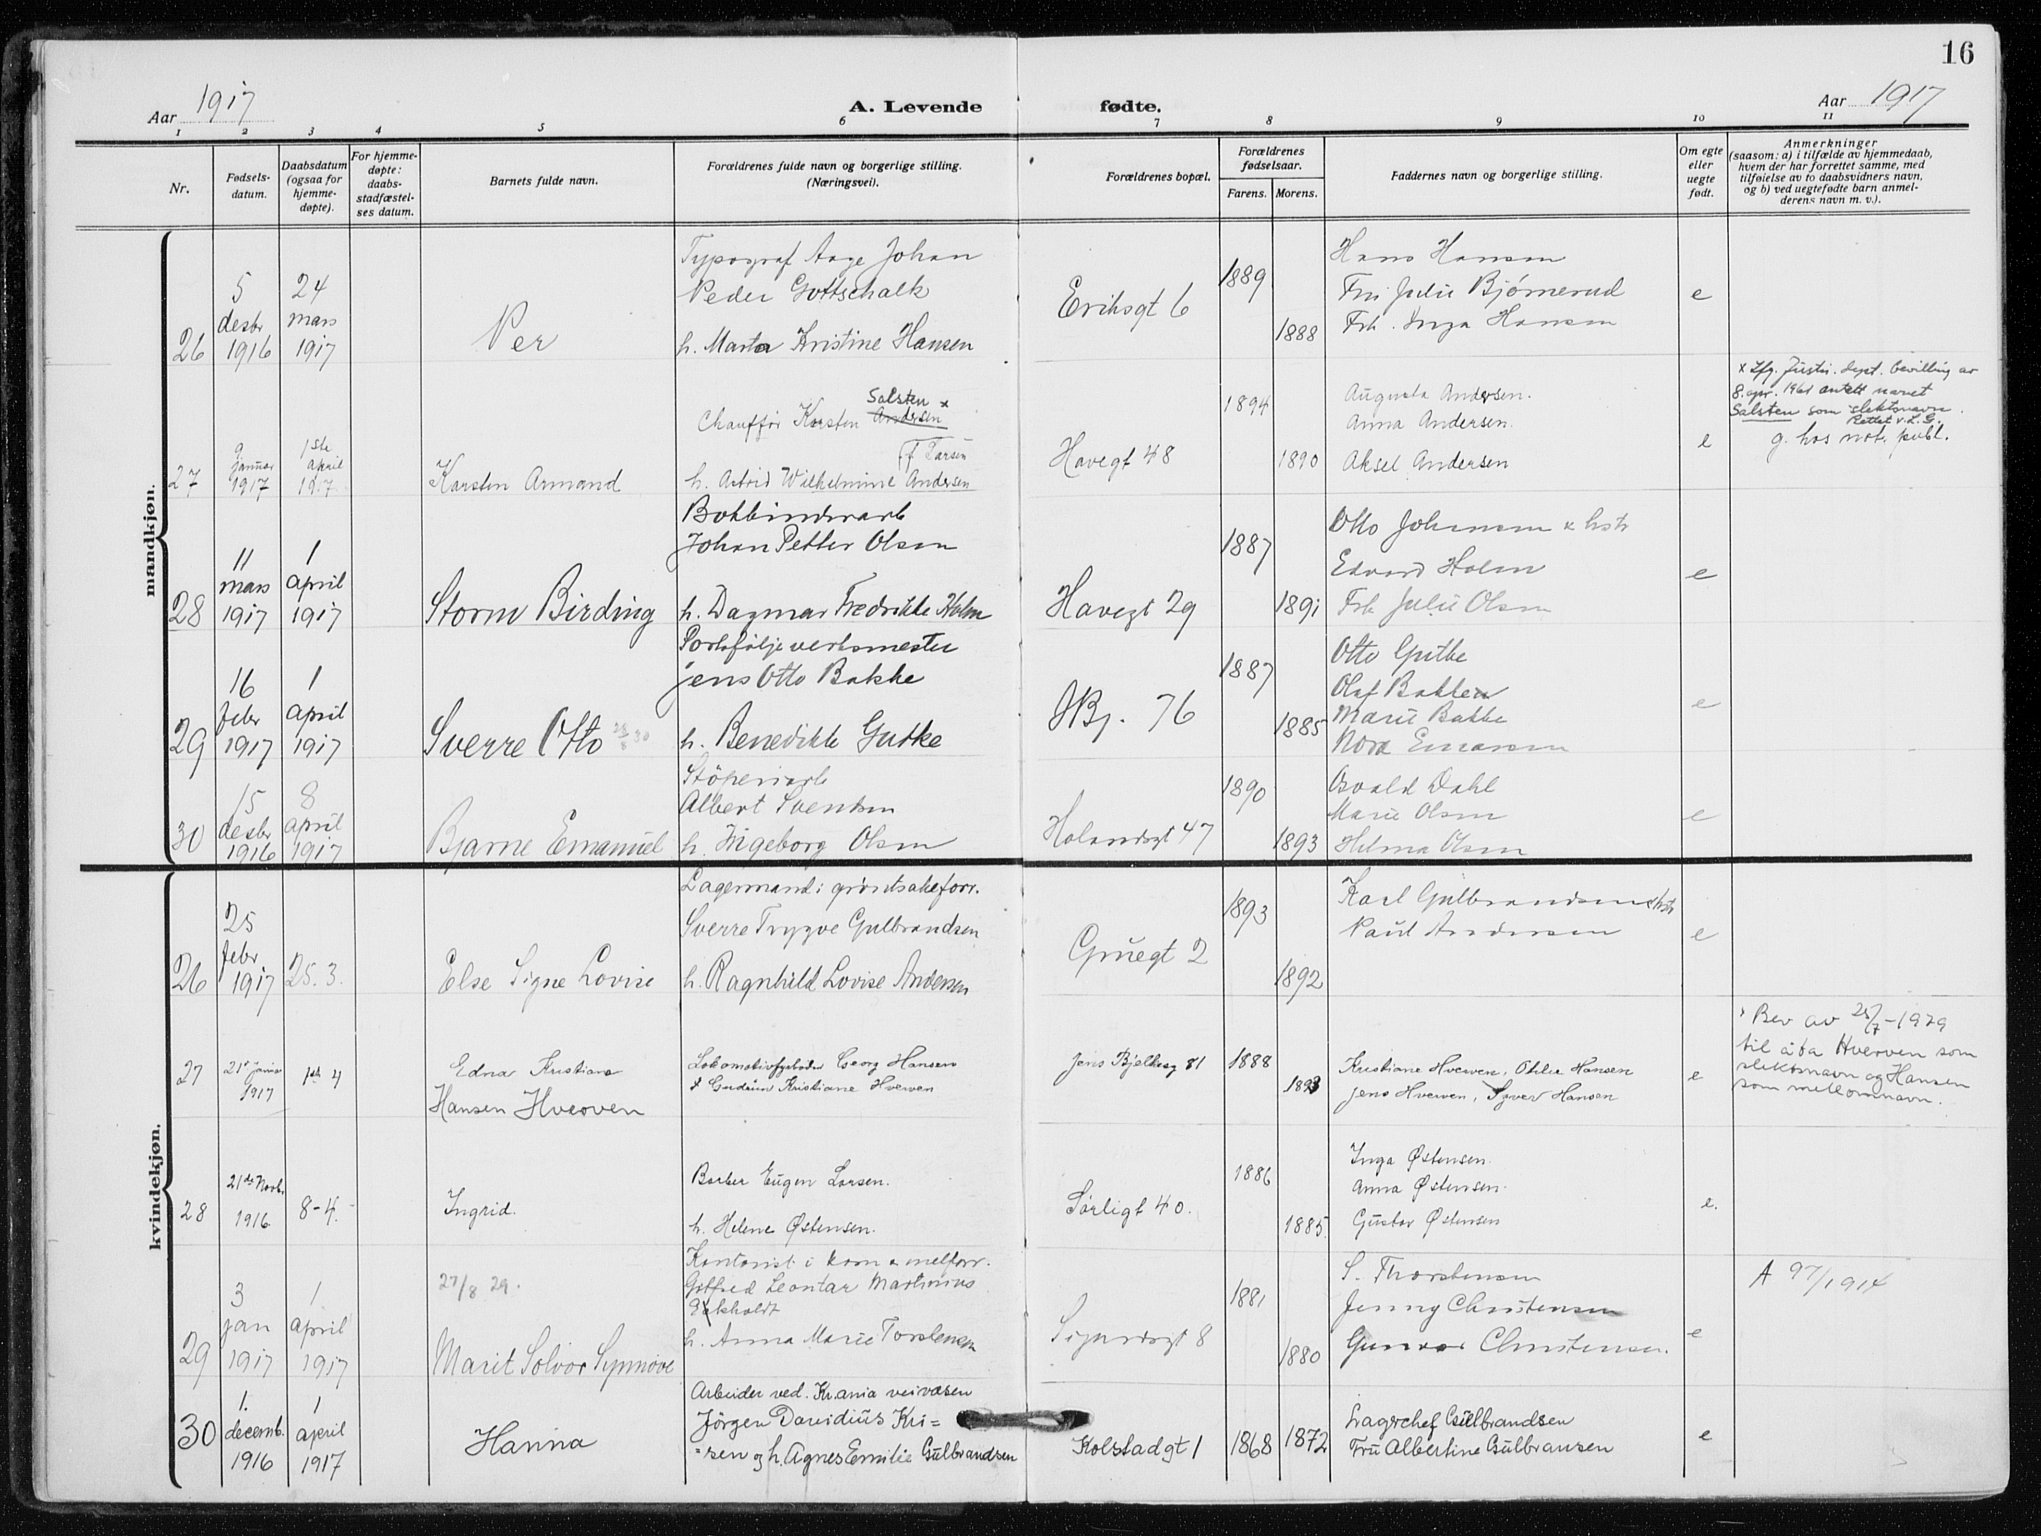 16
Aar 1917
A. Levende fødte.
Aar 1917
1 2 3 4 5 6 7 8 9 10 11
Nr.
Fødsels-
datum.
Daabsdatum
(ogsaa for
hjemme-
døpte).
For hjemme-
døpte:
daabs-
stadfæstel-
ses datum.
Barnets fulde navn.
Forældrenes fulde navn og borgerlige stilling.
(Næringsvei).
Forældrenes bopæl.
Forældrenes
fødselsaar.
Farens. Morens.
Faddernes navn og borgerlige stilling.
Om egte
eller
uegte
født.
Anmerkninger
(saasom: a) i tilfælde av hjemmedaab,
hvem der har forrettet samme, med
tilføielse av to daabsvidners navn,
og b) ved uegtefødte barn anmel-
derens navn m. v.).
mandkjøn.
26
5
desbr
1916
24
mars
1917
Per
Typograf Aage Johan
Peder Gottschalk
h. Marta Kristine Hansen
Eriksgt 6
1889
1888
Hans Hansen
Fru Julie Bjørnerud
Frk. Inga Hansen
e
27
9
januar
1917
1ste
april
1917
Karsten Armand
Salsten x
Chauffør Karsten Andersen
f. Larsen
h. Astrid Wilhelmine Andersen
Havegt 48
1894
1890
Augusta Andersen.
Anna Andersen.
Aksel Andersen
e
x Ifg. Justis. dept. bevilling av
8. apr. 1961 antatt navnet
Salsten som slektsnavn.
Rettet v. L. G.
g. hos not. publ.
28
11
mars
1917
1
april
1917
Storm Birding
Bokbinderarb
Johan Petter Olsen
h. Dagmar Fredrikke Holm
Havegt 29
1887
1891
Otto Johansen & hstr
Edvard Holm
Frk Julie Olsen
e
29
16
febr
1917
1
april
1917
Sverre Otto
Portføljeverksmester
Jens Otto Bakke
h. Benedikte Gutke
JBj. 76
1887
1885
Otto Gutke
Olaf Bakken
Marie Bakke
Nora Einarsen
e
30
15
desbr
1916
8
april
1917
Bjarne Emanuel
Støperiarb
Albert Svendsen
h. Ingeborg Olsen
Holandsgt 47
1890
1893
Osvald Dahl
Marie Olsen
Helma Olsen
e
kvindekjøn.
26
25
febr
1917
25. 3.
Else Signe Lovise
Lagermand i grøntsakeforr.
Sverre Trygve Gulbrandsen
h. Ragnhild Lovise Andersen
Gruegt 2
1893
1892
Karl Gulbrandsen & hstr
Paul Andersen
e
27
1917
1ste 4
Edna Kristiane
Hansen Hverven
Lokomotivfyrbøder Georg Hansen
& Gudrun Kristiane Hverven
Jens Bjelkesg 81
1888
1893
Kristiane Hverven, Othlie Hansen
Jens Hverven, Syver Hansen
e
Bev av 25/7-1929
til å ta Hverven som
slektsnavn og Hansen
som mellomnavn.
28
21de Novb.
1916
8-4.
Ingrid.
Barber Eugen Larsen.
h. Helene Østensen.
Sørligt 40.
1886
1885.
Inga Østensen.
Anna Østensen.
Gustav Østensen
e.
29
3
jan
1917
1
april
1917
27/8 29.
Marit Solvor Synnøve
Kontorist i korn & melforr.
Gotfred Leontar Martinius
Eckholdt
h. Anna Marie Torstensen
Sigurdsgt 8
1881
1880
S. Thorstensen
Jenny Christensen
Gunvor Christensen.
e
A 97/1914
30
1.
decemb.
1916
1
april
1917
Hanna
Arbeider ved. Kr.ania veivæsen
Jörgen Davidius Kri=
=sen og h. Agnes Emilie Gulbrandsen
Kolstadgt 1
1868
1872
Lagerchef Gulbrandsen
Fru Albertine Gulbransen
e